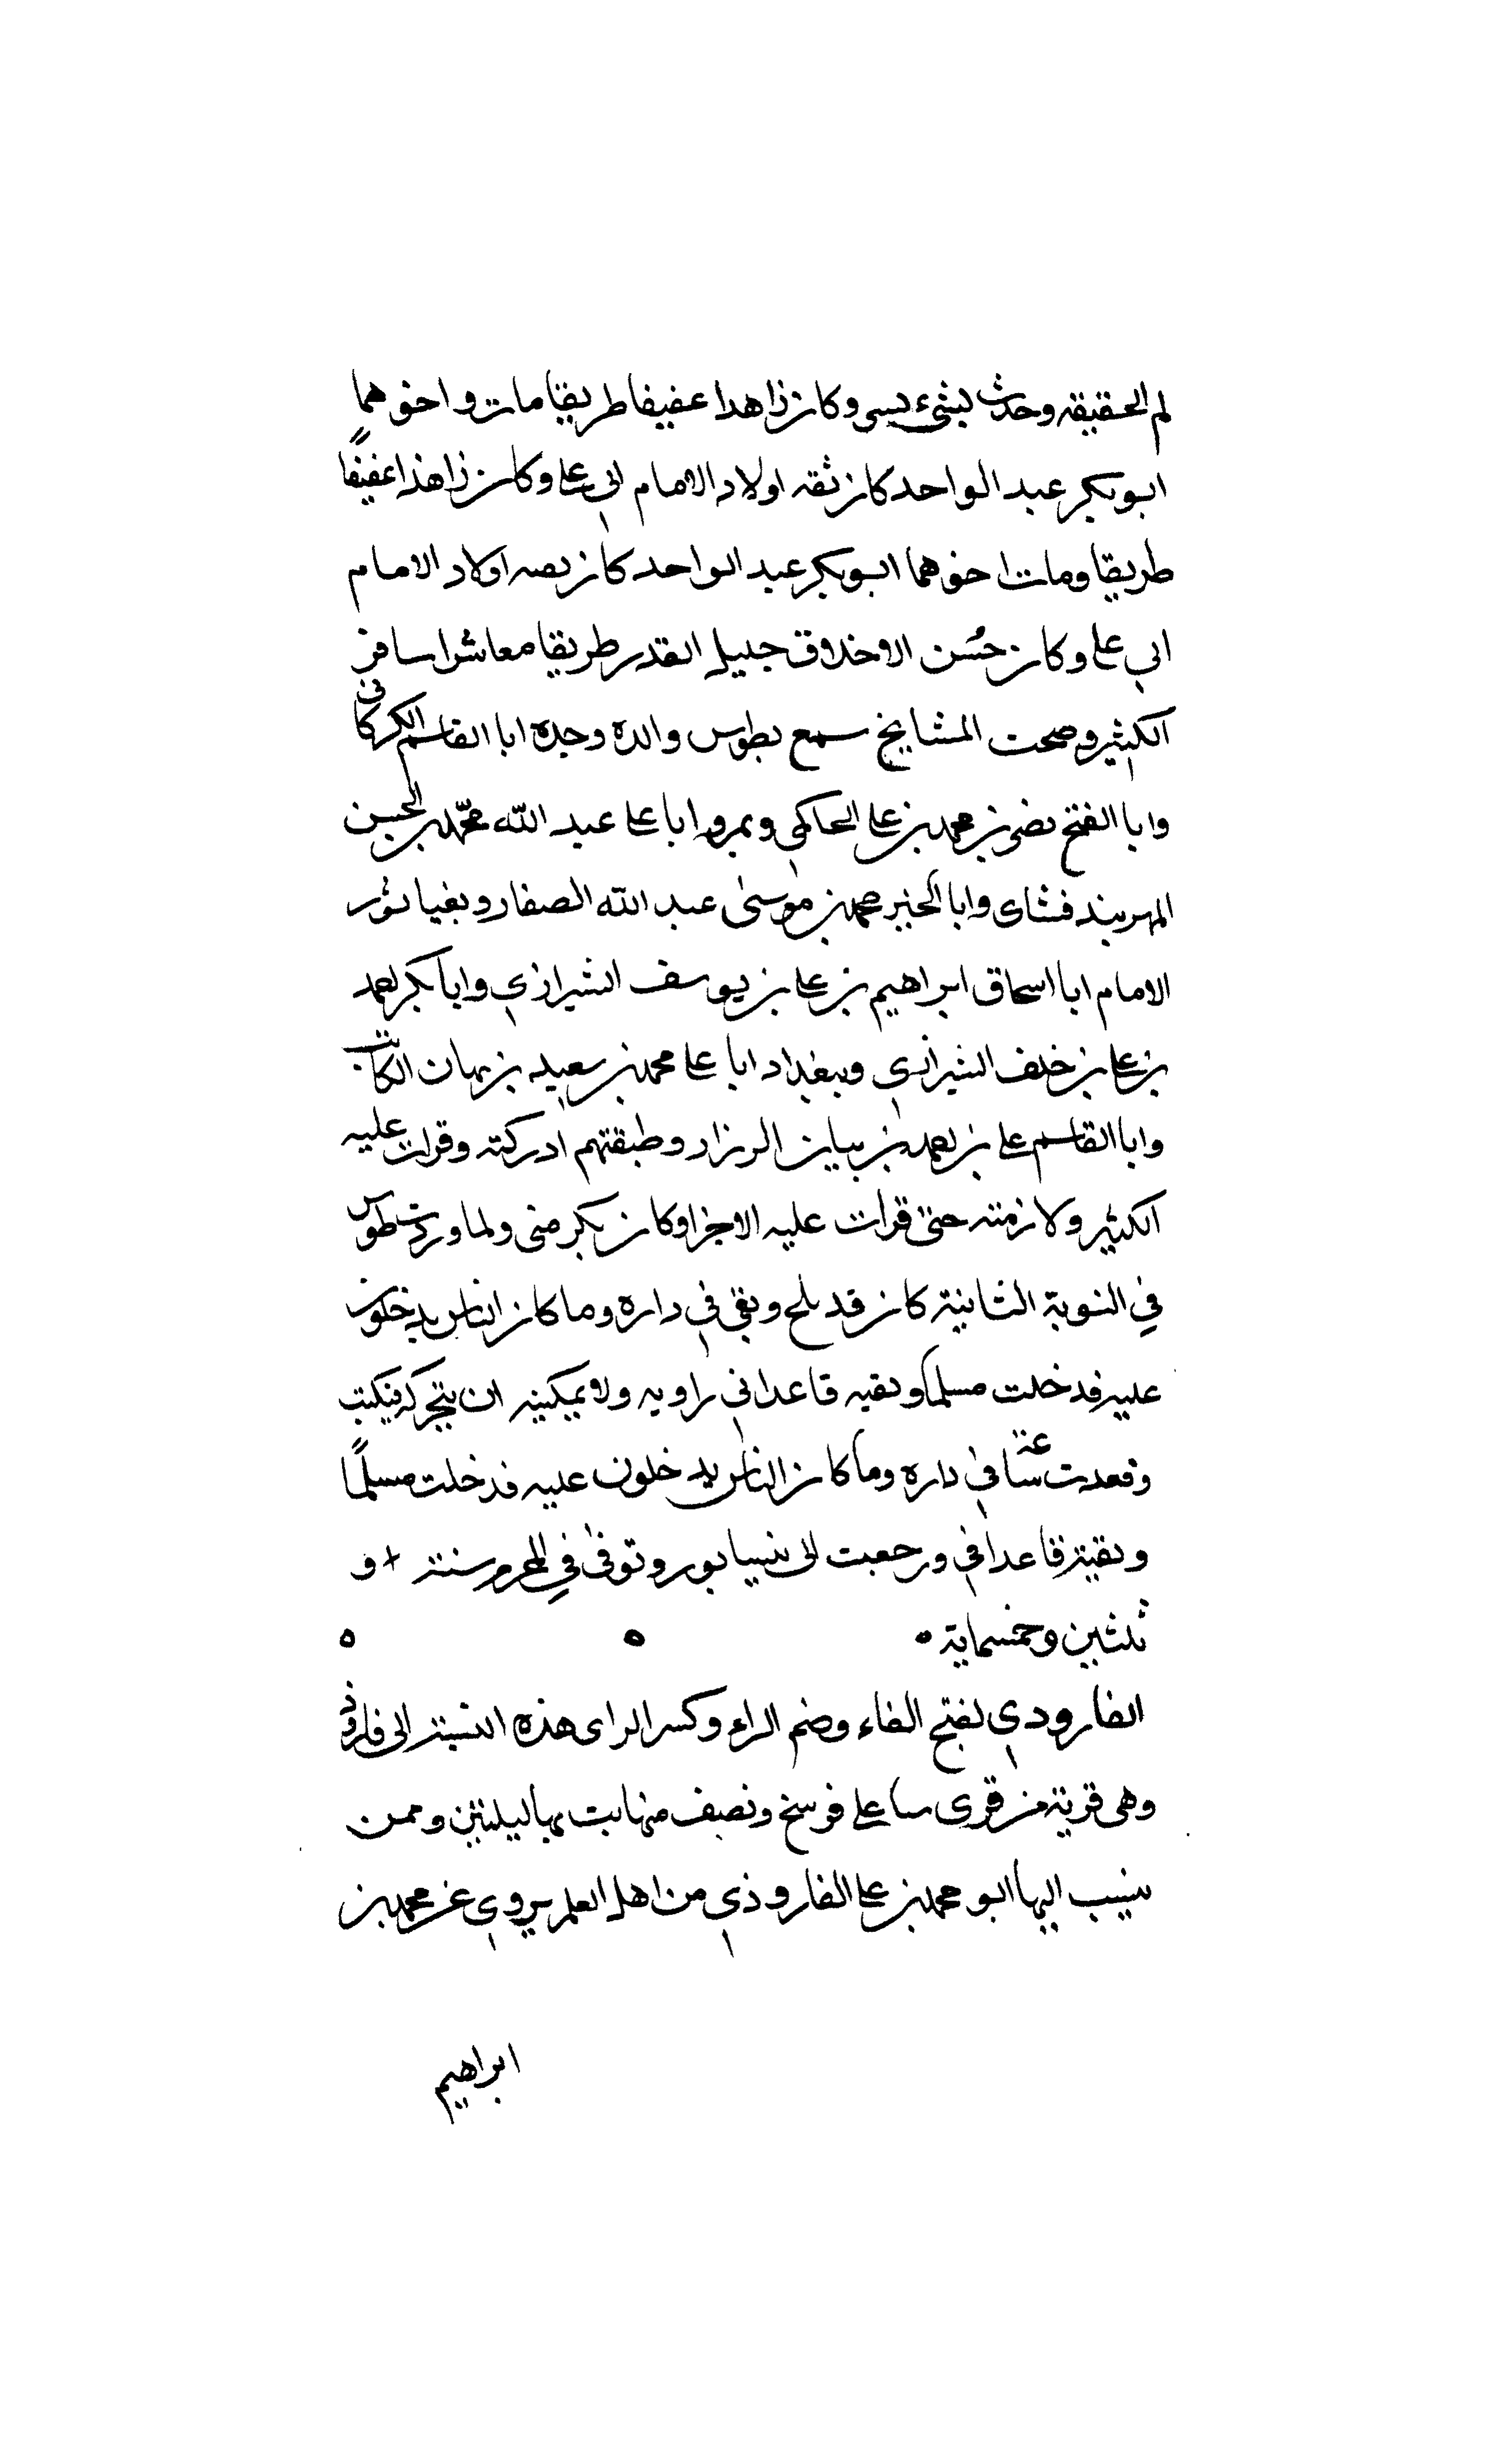 لم الحقيقه وحدث بشىء يسير وكان زاهدا عفيفا طريقا مات واخوهما
ابو بكر عبد الواحد كان ثقه اولاد الامام ابي علي وكان زاهدا عفيفًا
طريقا ومات اخوهما ابو بكر عبد الواحد كان بصه اولاد الامام
ابي علي وكان حسن الاخلاق جليل القدر طريقا معاشرا سافر
الكثير وصحب المشايخ سمع بطوس والده وجده ابا القاسم الكركاني
وابا الفتح نصر بن محمد بن علي الحاكمي وبمرو ابا علي عبد الله محمد بن الحسن
المهربندفشاي وابا الخير محمد بن موسى عبد الله الصفار وبنيسابور
الامام ابا اسحاق ابراهيم بن علي بن يوسف الشيرازي وابا بكر احمد
بن علي بن خلف الشيرازي وببغداد ابا علي محمد بن سعيد بن نبهان الكاتب
وابا القاسم علي بن احمد بن بيان الرزاز وطبقتهم ادركته وقرات عليه
الكثير ولازمته حتى قرات عليه الاجزا وكان يكرمني ولما وردت طوس
في النوبة الثانية كان قد بلح وبقي في داره وما كان الناس يدخلون
عليه فدخلت مسلما وبقيه قاعدا في زاويه ولا يمكنه ان يتحرك فبكيت
وقعدت عنده ساعة في داره وما كان الناس يدخلون عليه فدخلت مسلمًا
وبقيته قاعدا في ورجعت الى نيسابور وتوفى في المحرم سنة + و
ثلثين وخمسماية ه ه ه
الفارودي بفتح الفاء وضم الراء وكسر الراى هذه النسبة الى فاروذ
وهى قرية من قرى نسا على فرسخ ونصف منها بت بها ليلتين وممن
ينسب اليها ابو محمد بن علي الفاروذي من اهل العلم يروي عن محمد بن
ابراهيم